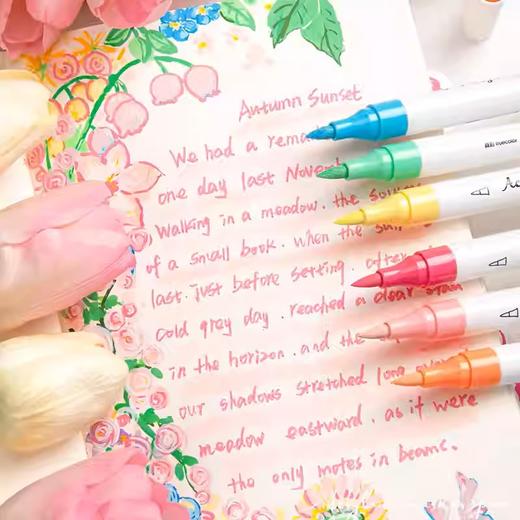 Autumn Sunset
We had a rema
one day last Novemb
Walking in a meadow. the sou
of a small book. when the sun
last. just before setting. after
cold grey day. reached a clear
in the horizon. and the
our shadows stretched long
meadow eastward. as if were
the only motes in beams.